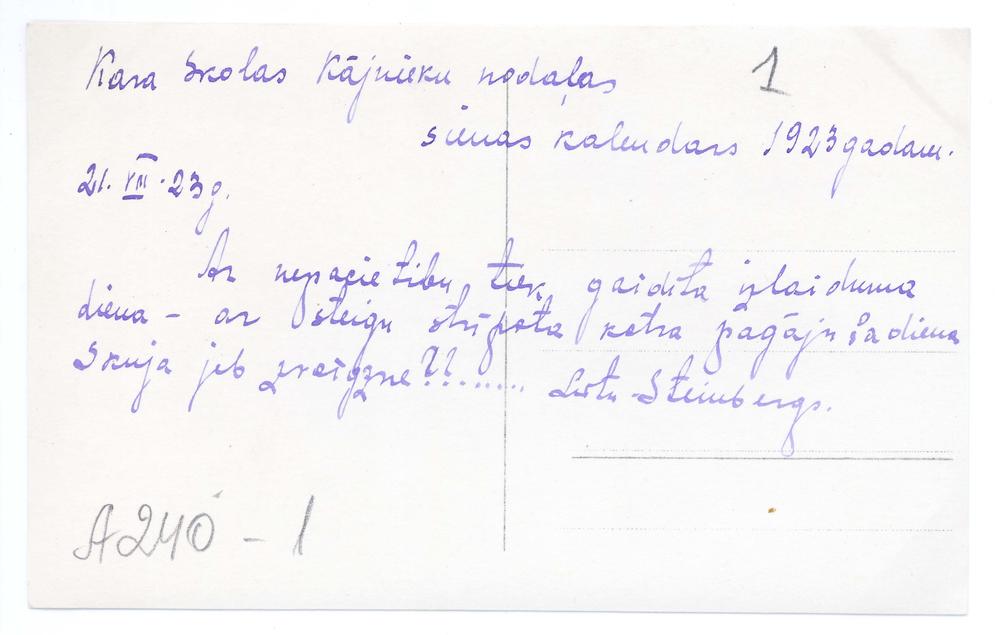 Kara Skolas Kājnieku nodaļas
1
sienas kalendars 1923 gadam.
21. VIII. 23g.
Ar nepacietibu tiek gaidita izlaiduma
diena - ar steigu strīpota katra pagājušā diena
Skuja jeb zvaigzne??........ Leitn. Steinbergs.
A240 - 1